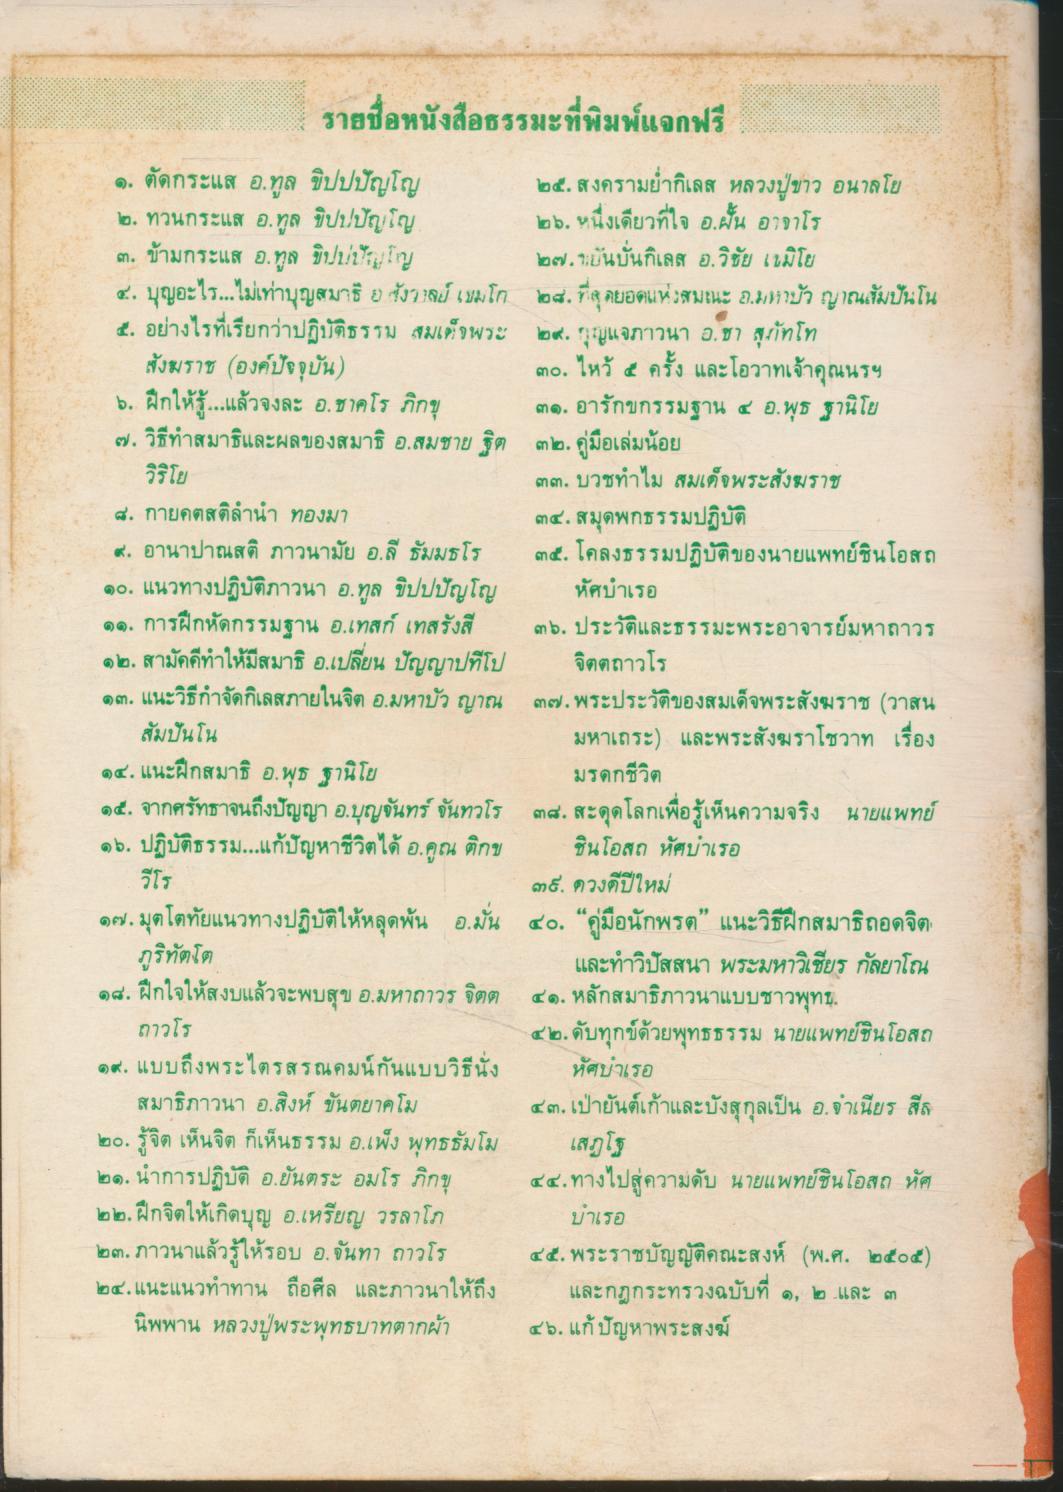 รายชื่อหนังสือธรรมะที่พิมพ์แจกฟรี
๑. ตัดกระแส อ.ทูล ขิปปปัญโญ
๒. ทวนกระแส อ.ทูล ขิปปปัญโญ
๓. ข้ามกระแส อ.ทูล ขิปปปัญโญ
๔. บุญอะไร...ไม่เท่าบุญสมาธิ อ.สังวาลย์ เขมโก
๕. อย่างไรที่เรียกว่าปฏิบัติธรรม สมเด็จพระ
สังฆราช (องค์ปัจจุบัน)
๖. ฝึกให้รู้...แล้วจงละ อ.ชาคโร ภิกขุ
๗. วิธีทำสมาธิและผลของสมาธิ อ.สมชาย ฐิต
วิริโย
๘. กายคตสติลำนำ ทองมา
๙. อานาปาณสติ ภาวนามัย อ.ลี ธัมมธโร
๑๐. แนวทางปฏิบัติภาวนา อ.ทูล ขิปปปัญโญ
๑๑. การฝึกหัดกรรมฐาน อ.เทสก์ เทสรังสี
๑๒. สามัคคีทำให้มีสมาธิ อ.เปลี่ยน ปัญญาปทีโป
๑๓. แนะวิธีกำจัดกิเลสภายในจิต อ.มหาบัว ญาณ
สัมปันโน
๑๔. แนะฝึกสมาธิ อ.พุธ ฐานิโย
๑๕. จากศรัทธาจนถึงปัญญา อ.บุญจันทร์ จันทวโร
๑๖. ปฏิบัติธรรม...แก้ปัญหาชีวิตได้ อ.คูณ ติกข
วีโร
๑๗. มุตโตทัยแนวทางปฏิบัติให้หลุดพ้น อ.มั่น
ภูริทัตโต
๑๘. ฝึกใจให้สงบแล้วจะพบสุข อ.มหาถาวร จิตต
ถาวโร
๑๙. แบบถึงพระไตรสรณคมน์กันแบบวิธีนั่ง
สมาธิภาวนา อ.สิงห์ ขันตยาคโม
๒๐. รู้จิต เห็นจิต ก็เห็นธรรม อ.เพ็ง พุทธธัมโม
๒๑. นำการปฏิบัติ อ.ยันตระ อมโร ภิกขุ
๒๒. ฝึกจิตให้เกิดบุญ อ.เหรียญ วรลาโภ
๒๓. ภาวนาแล้วรู้ให้รอบ อ.จันทา ถาวโร
๒๔. แนะแนวทำทาน ถือศีล และภาวนาให้ถึง
นิพพาน หลวงปู่พระพุทธบาทตากผ้า
๒๕. สงครามย่ำกิเลส หลวงปู่ขาว อนาลโย
๒๖. หนึ่งเดียวที่ใจ อ.ฝั้น อาจาโร
๒๗. ขยันบั่นกิเลส อ.วิชัย เขมิโย
๒๘. ที่สุดยอดแห่งสมณะ อ.มหาบัว ญาณสัมปันโน
๒๙. กุญแจภาวนา อ.ชา สุภัทโท
๓๐. ไหว้ ๕ ครั้ง และโอวาทเจ้าคุณนรฯ
๓๑. อารักขกรรมฐาน ๔ อ.พุธ ฐานิโย
๓๒. คู่มือเล่มน้อย
๓๓. บวชทำไม สมเด็จพระสังฆราช
๓๔. สมุดพกธรรมปฏิบัติ
๓๕. โคลงธรรมปฏิบัติของนายแพทย์ชินโอสถ
หัศบำเรอ
๓๖. ประวัติและธรรมะพระอาจารย์มหาถาวร
จิตตถาวโร
๓๗. พระประวัติของสมเด็จพระสังฆราช (วาสน
มหาเถระ) และพระสังฆราโชวาท เรื่อง
มรดกชีวิต
๓๘. สะดุดโลกเพื่อรู้เห็นความจริง นายแพทย์
ชินโอสถ หัศบำเรอ
๓๙. ดวงดีปีใหม่
๔๐. “คู่มือนักพรต” แนะวิธีฝึกสมาธิถอดจิต
และทำวิปัสสนา พระมหาวิเชียร กัลยาโณ
๔๑. หลักสมาธิภาวนาแบบชาวพุทธ
๔๒. ดับทุกข์ด้วยพุทธธรรม นายแพทย์ชินโอสถ
หัศบำเรอ
๔๓. เป่ายันต์เก้าและบังสุกุลเป็น อ.จำเนียร สีล
เสฏโฐ
๔๔. ทางไปสู่ความดับ นายแพทย์ชินโอสถ หัศ
บำเรอ
๔๕. พระราชบัญญัติคณะสงฆ์ (พ.ศ. ๒๕๐๕)
และกฎกระทรวงฉบับที่ ๑, ๒ และ ๓
๔๖. แก้ปัญหาพระสงฆ์